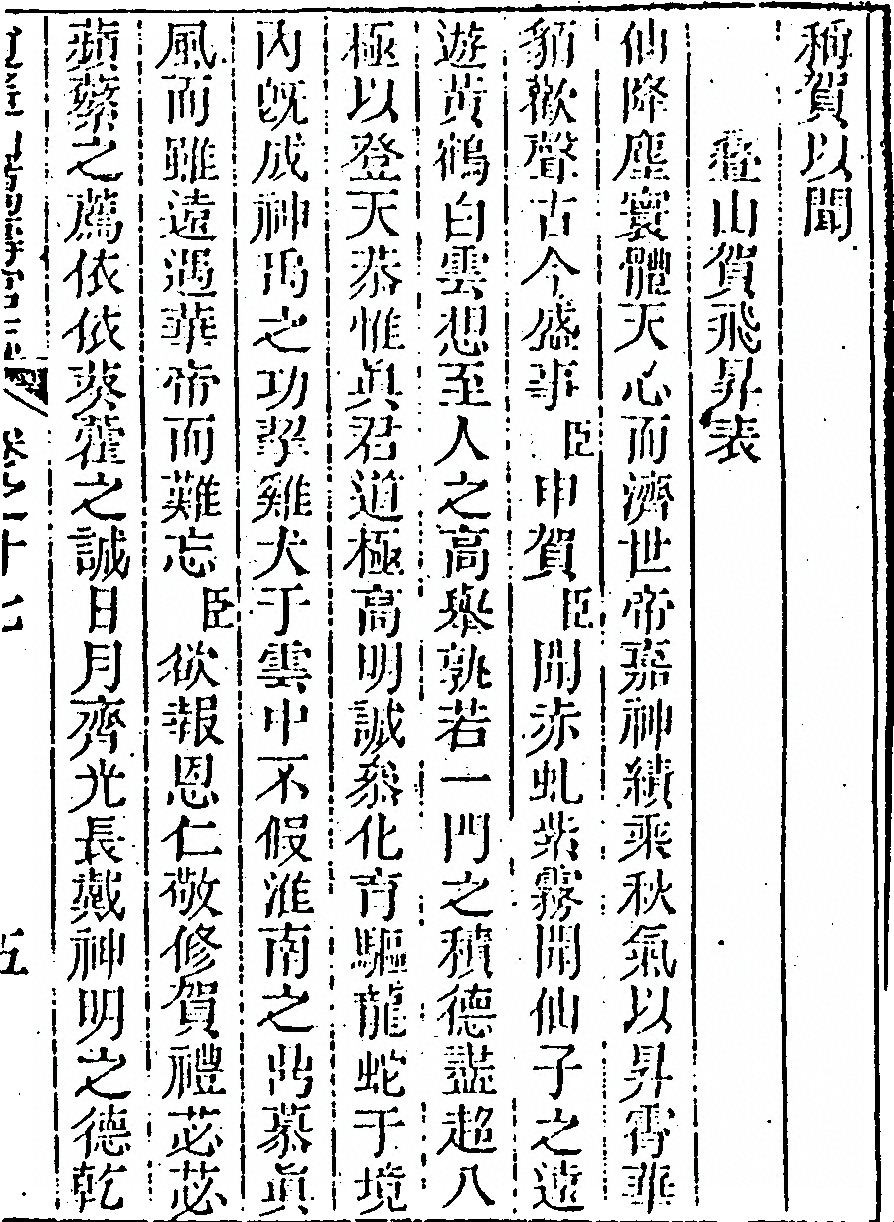 稱賀以聞
疊山賀飛昇表
仙降塵寰體天心而濟世帝嘉神績乘秋氣以昇霄華
貊歡聲古今盛事臣中賀臣聞赤虬紫霧開仙子之遠
遊黃鶴白雲想至人之高舉孰若一門之積德盡超八
極以登天恭惟眞君道極高明誠參化育驅龍蛇于境
內旣成神禹之功挈雞犬于雲中不假淮南之鼎慕眞
風而雖遠遇華帝而難忘臣欲報恩仁敬修賀禮苾苾
蘋蘩之薦依依葵藿之誠日月齊光長戴神明之德乾
卷之十七 五